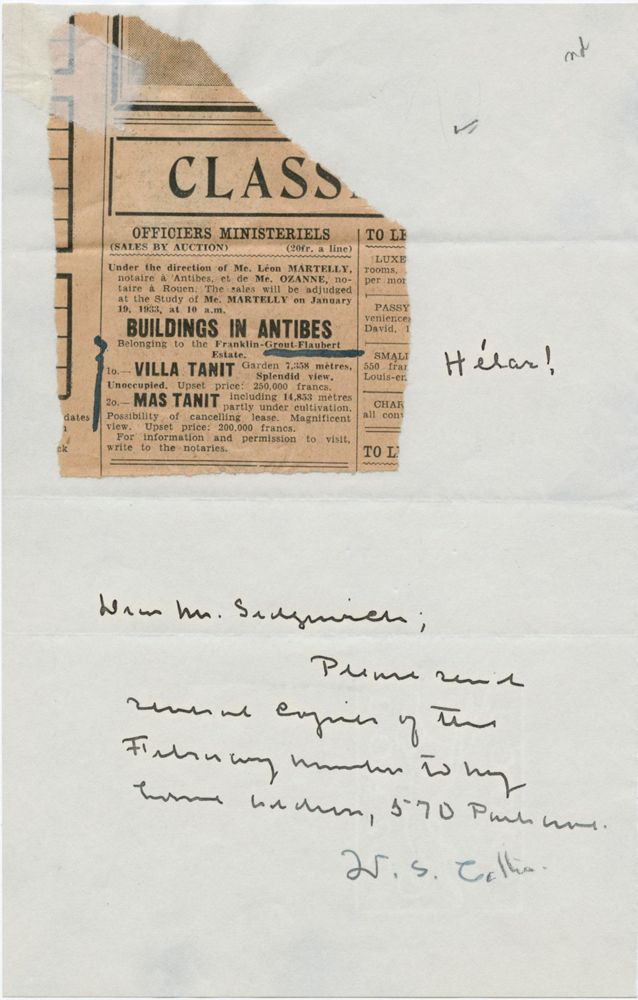 nd
CLASS
OFFICIERS MINISTERIELS
(SALES BY AUCTION) (20fr. a line)
Under the direction of Me. Léon MARTELLY,
notaire à Antibes, et de Me. OZANNE, no-
taire à Rouen. The sales will be adjudged
at the Study of Me. MARTELLY on January
19, 1933, at 10 a.m.
BUILDINGS IN ANTIBES
Belonging to the Franklin-Grout-Flaubert
Estate.
1o.— VILLA TANIT Garden 7,358 mètres,
Splendid view.
Unoccupied. Upset price: 250,000 francs.
2o.— MAS TANIT including 14,853 mètres
partly under cultivation.
Possibility of cancelling lease. Magnificent
view. Upset price: 200,000 francs.
For information and permission to visit,
write to the notaries.
TO LE
LUXE
rooms,
per mon
PASSY
venience
David, 1
SMALL
550 fra
Louis-en
CHAR
all conv
TO L
dates
ck
Hélas!
Dear Mr. Sedgwick;
Please send
several copies of the
February number to my
home address, 570 Park Ave.
W. S. C